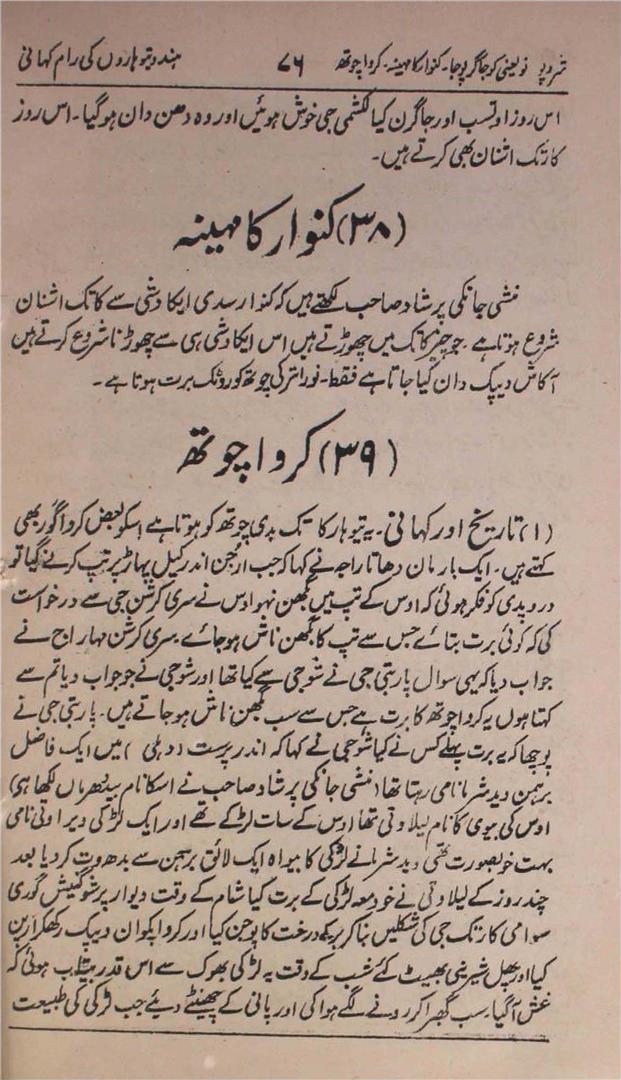 شرد پر نو یعنی کو جاگر پوجا۔ کنوار کا مہینہ۔ کروا چوتھ ۷۶ ہندو تیوہاروں کی رام کہانی
اس روز اوتسب اور جاگرن کیا لکشمی جی خوش ہوئیں اور وہ دھن دان ہو گیا۔ اس روز
کارتک اشنان بھی کرتے ہیں۔
(۳۸) کنوار کا مہینہ
منشی جانکی پرشاد صاحب لکھتے ہیں کہ کنوار سدی ایکادشی سے کاتک اشنان
شروع ہوتا ہے۔ جو چیز کاتک میں چھوڑتے ہیں اس ایکادشی ہی سے چھوڑنا شروع کرتے ہیں
آکاش دیپک دان کیا جاتا ہے فقط۔ نوراتر کی چوتھ کو روٹک برت ہوتا ہے۔
(۳۹) کروا چوتھ
(۱) تاریخ اور کہانی۔ یہ تیوہار کاتک بدی چوتھ کو ہوتا ہے اسکو بعض کروا گور بھی
کہتے ہیں۔ ایک بار مان دھاتا راجہ نے کہا کہ جب ارجن اندر کیل پہاڑ پر تپ کرنے گیا تو
دروپدی کو فکر ہوئی کہ اوس کے تپ میں بگھن نہو اوس نے سری کرشن جی سے درخواست
کی کہ کوئی برت بتائے جس سے تپ کا بگھن ناش ہو جائے۔ سری کرشن مہاراج نے
جواب دیا کہ یہی سوال پاربتی جی نے شوجی سے کیا تھا اور شوجی نے جو جواب دیا تم سے
کہتا ہوں یہ کروا چوتھ کا برت ہے جس سے سب بگھن ناش ہو جاتے ہیں۔ پاربتی جی نے
پوچھا کہ یہ برت پہلے کس نے کیا شوجی نے کہا کہ اندر پرست (دہلی) میں ایک فاضل
برہمن وید شرما نامی رہتا تھا (منشی جانکی پرشاد صاحب نے اسکا نام لکھا ہے)
اوس کی بیوی کا نام لیلاوتی تھا اوس کے سات لڑکے تھے اور ایک لڑکی ویراوتی نامی
بہت خوبصورت تھی وید شرما نے لڑکی کا بیواہ ایک لائق برہمن سے بدھوت کر دیا بعد
چند روز کے لیلاوتی نے خود معہ لڑکی کے برت کیا شام کے وقت دیوار پر شو گنیش گوری
سوامی کارتک جی کی شکلیں بنا کر بڑ کے درخت کا پوجن کیا اور کروا پکوان دیپک رکھکر ارپن
کیا اور پھل شیرینی بھینٹ کئے شب کے وقت یہ لڑکی بھوک سے اس قدر بیتاب ہوئی کہ
غش آ گیا۔ سب گھبرا کر رونے لگے ہوا کی اور پانی کے چھینٹے دیئے جب لڑکی کی طبیعت